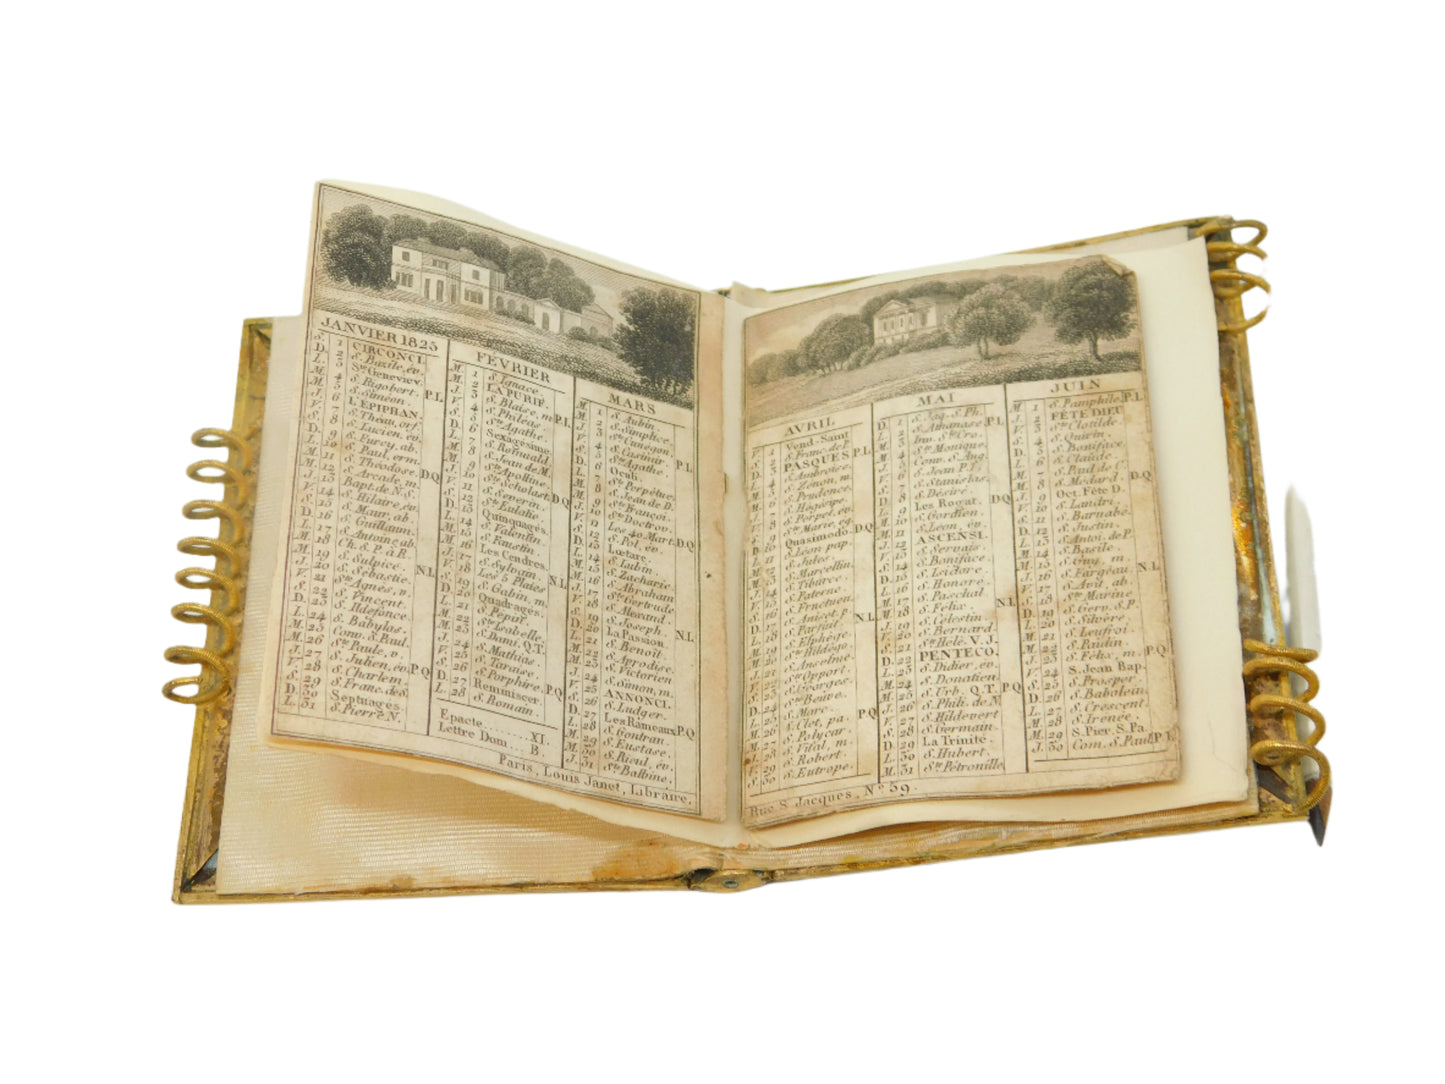 JANVIER 1825
S. 1 CIRCONCI.
D. 2 S. Bazile, év.
L. 3 Ste Geneviev.
M. 4 S. Rigobert. P.L
M. 5 S. Siméon.
J. 6 L'ÉPIPHAN.
V. 7 S. Théau, orf.
S. 8 S. Lucien, év.
D. 9 S. Furcy, ab.
L. 10 S. Paul, erm.
M. 11 S. Théodose.
M. 12 S. Arcade, m. D.Q
J. 13 Bapt. de N.S.
V. 14 S. Hilaire, év.
S. 15 S. Maur, ab.
D. 16 S. Guillaum.
L. 17 S. Antoine, ab.
M. 18 Ch. S. P. à R.
M. 19 S. Sulpice. N.L
J. 20 S. Sébastie.
V. 21 Ste Agnès, v.
S. 22 S. Vincent.
D. 23 S. Ildefonce.
L. 24 S. Babylas.
M. 25 Conv. S. Paul.
M. 26 Ste Paule, v.
J. 27 S. Julien, év. P.Q
V. 28 S. Charlem.
S. 29 S. Franc. de S.
D. 30 Septuagés.
L. 31 S. Pierre N.
FEVRIER
M. 1 S. Ignace.
M. 2 LA PURIF.
J. 3 S. Blaise, m. P.L
V. 4 S. Philéas.
S. 5 Ste Agathe.
D. 6 Sexagésime.
L. 7 S. Romuald.
M. 8 S. Jean de M.
M. 9 Ste Apolline.
J. 10 Ste Scholast. D.Q
V. 11 S. Severin.
S. 12 Ste Eulalie
D. 13 Quinquagés.
L. 14 S. Valentin.
M. 15 S. Faustin.
M. 16 Les Cendres.
J. 17 S. Sylvain. N.L
V. 18 Les 5 Plaies
S. 19 S. Gabin, m.
D. 20 Quadragés.
L. 21 S. Pépin.
M. 22 Ste Isabelle.
M. 23 S. Dam. Q.T.
J. 24 S. Mathias.
V. 25 S. Taraise.
S. 26 S. Porphire. P.Q
D. 27 Reminiscer.
L. 28 S. Romain.
Epacte......XI.
Lettre Dom....B.
MARS
M. 1 S. Aubin.
M. 2 S. Simplice.
J. 3 Ste Cunegon.
V. 4 S. Casimir. P.L
S. 5 Ste Agathe.
D. 6 Oculi.
L. 7 Ste Perpétue.
M. 8 S. Jean de D.
M. 9 Ste Françoi.
J. 10 Ste Doctrov.
V. 11 Les 40 Mart. D.Q
S. 12 S. Pol, év.
D. 13 Lætare.
L. 14 S. Lubin.
M. 15 S. Zacharie
M. 16 S. Abraham
J. 17 Ste Gertrude
V. 18 S. Alexand.
S. 19 S. Joseph. N.L
D. 20 La Passion.
L. 21 S. Benoît.
M. 22 S. Aprodise.
M. 23 S. Victorien
J. 24 S. Simon, m.
V. 25 ANNONCI.
S. 26 S. Ludger.
D. 27 Les Rameaux P.Q
L. 28 S. Gontran.
M. 29 S. Eustase.
M. 30 S. Rieul, év.
J. 31 Ste Balbine.
Paris, Louis Janet, Libraire,
AVRIL
V. 1 Vend. Saint
S. 2 S. Franc. de P.
D. 3 PASQUES P.L
L. 4 S. Ambroise.
M. 5 S. Zénon, m.
M. 6 S. Prudence.
J. 7 S. Hégésipe.
V. 8 S. Perpet, év.
S. 9 Ste Marie, eg.
D. 10 Quasimodo. D.Q
L. 11 S. Léon pap.
M. 12 S. Jules.
M. 13 S. Marcellin.
J. 14 S. Tiburce.
V. 15 S. Paterne.
S. 16 S. Fructueu.
D. 17 S. Anicet p. N.L
L. 18 S. Parfait.
M. 19 S. Elphège.
M. 20 Ste Hildégo.
J. 21 S. Anselme.
V. 22 Ste Opport.
S. 23 S. Georges.
D. 24 Ste Beuve.
L. 25 S. Marc. P.Q
M. 26 S. Clet, pa.
M. 27 S. Polycar
J. 28 S. Vital, m.
V. 29 S. Robert.
S. 30 S. Eutrope.
MAI
D. 1 S. Jaq. S. Ph.
L. 2 S. Athanase P.L
M. 3 Inv. Ste Cro.
M. 4 Ste Monique.
J. 5 Conv. S. Aug.
V. 6 S. Jean P.L.
S. 7 S. Stanislas.
D. 8 S. Désiré.
L. 9 Les Rogat. D.Q
M. 10 S. Gordien.
M. 11 S. Léon, év.
J. 12 ASCENSI.
V. 13 S. Servais.
S. 14 S. Boniface.
D. 15 S. Isidore.
L. 16 S. Honoré.
M. 17 S. Paschal
M. 18 S. Félix. N.L
J. 19 S. Célestin.
V. 20 S. Bernard.
S. 21 Ste Hélè. V. J.
D. 22 PENTECO.
L. 23 S. Didier, év.
M. 24 S. Donatien.
M. 25 S. Urb. Q.T. P.Q
J. 26 S. Phili. de N
V. 27 S. Hildevert
S. 28 S. Germain.
D. 29 La Trinité.
L. 30 S. Hubert.
M. 31 Ste Pétronille.
JUIN
M. 1 S. Pamphile. P.L
J. 2 FÊTE DIEU
V. 3 Ste Clotilde.
S. 4 S. Quirin.
D. 5 S. Boniface.
L. 6 S. Claude.
M. 7 S. Paul de C.
M. 8 S. Médard. D.Q
J. 9 Oct. Fête D.
V. 10 S. Landri.
S. 11 S. Barnabé.
D. 12 S. Justin.
L. 13 S. Antoi. de P.
M. 14 S. Basile.
M. 15 S. Guy, m.
J. 16 S. Fargeau. N.L
V. 17 S. Avit, ab.
S. 18 Ste Marine
D. 19 S. Gerv. S. P.
L. 20 S. Silvère.
M. 21 S. Leufroi.
M. 22 S. Paulin
J. 23 S. Félix, m. P.Q
V. 24 S. Jean Bap.
S. 25 S. Prosper.
D. 26 S. Babolein.
L. 27 S. Crescent.
M. 28 S. Irenée.
M. 29 S. Pier. S. Pa.
J. 30 Com. S. Paul P.L
Rue S. Jacques, No. 59.